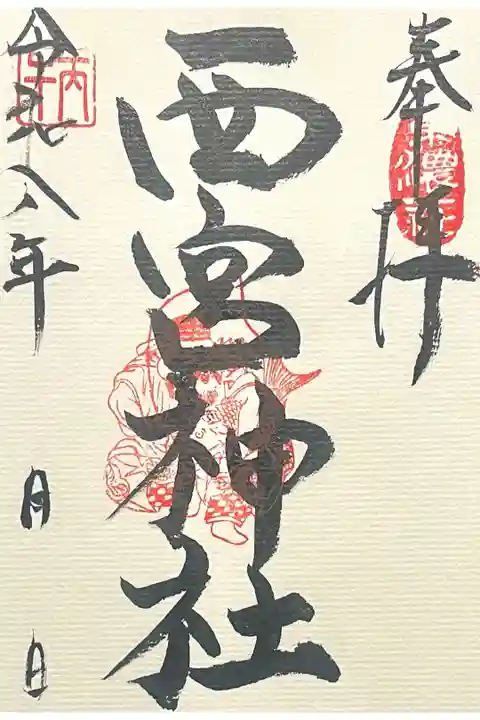 奉拝
西宮神社
令和八年 月 日
丙午